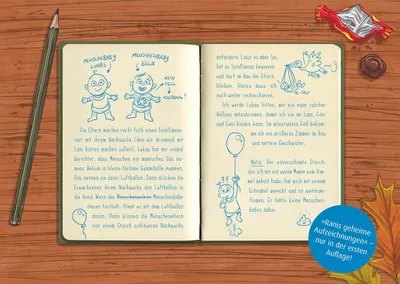 MENSCHENBABY
LUKAS
MENSCHENBABY
ELLA
KEIN
FELL
Die Eltern machen recht früh einen Intelligenz-
test mit ihrem Nachwuchs (den wir dringend mit
hätten machen sollen). Lukas hat mir einmal
berichtet, dass Menschen ein komisches Gas na-
mens Helium in kleine farbige Gummibälle pumpen.
Die nennen sie dann: Luftballon. Dann drücken die
Erwachsenen ihrem Nachwuchs den Luftballon in
die Hand. Wenn das Menschenbaby
diesen festhält, fliegt es mit dem Luftballon
davon. Dann können die Menscheneltern
von einem Storch schlaueren Nachwuchs
anfordern. Lässt es aber los,
hat es Intelligenz bewiesen
und darf im Bau der Eltern
bleiben. Hierzu muss ich
noch weiter recherchieren.
Ich werde Lukas bitten, mir ein paar solcher
Ballons mitzubringen, damit ich sie an
und binden kann. Im Fall bekom-
me ich ein größeres Zimmer im Bau
und nettere Geschwister.
Nota: Der unverschämte Storch,
den ich mit ein wenig vom Him-
mel geholt habe, hat mich mit seinem
Schnabel gezwickt und ist weiterge-
flogen. Er hatte keine Menschen-
babys dabei.
»Ranis geheime
Aufzeichnungen« –
nur in der ersten
Auflage!